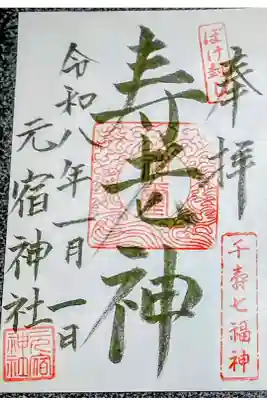 奉拝
ぼけ封
寿老神
令和八年一月一日
元宿神社
千寿七福神
元宿神社